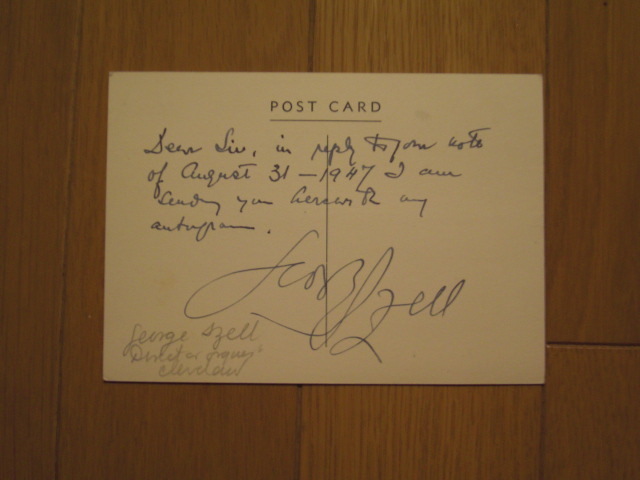 POST CARD
Dear Sir, in reply to your note
of August 31 - 1947 I am
sending you herewith my
autogram.
George Szell
George Szell
Director
Cleveland